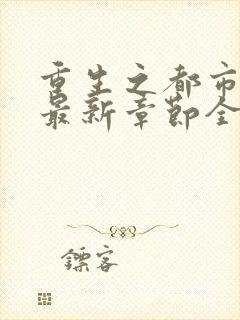 重生之都市
最新章节全
镖客